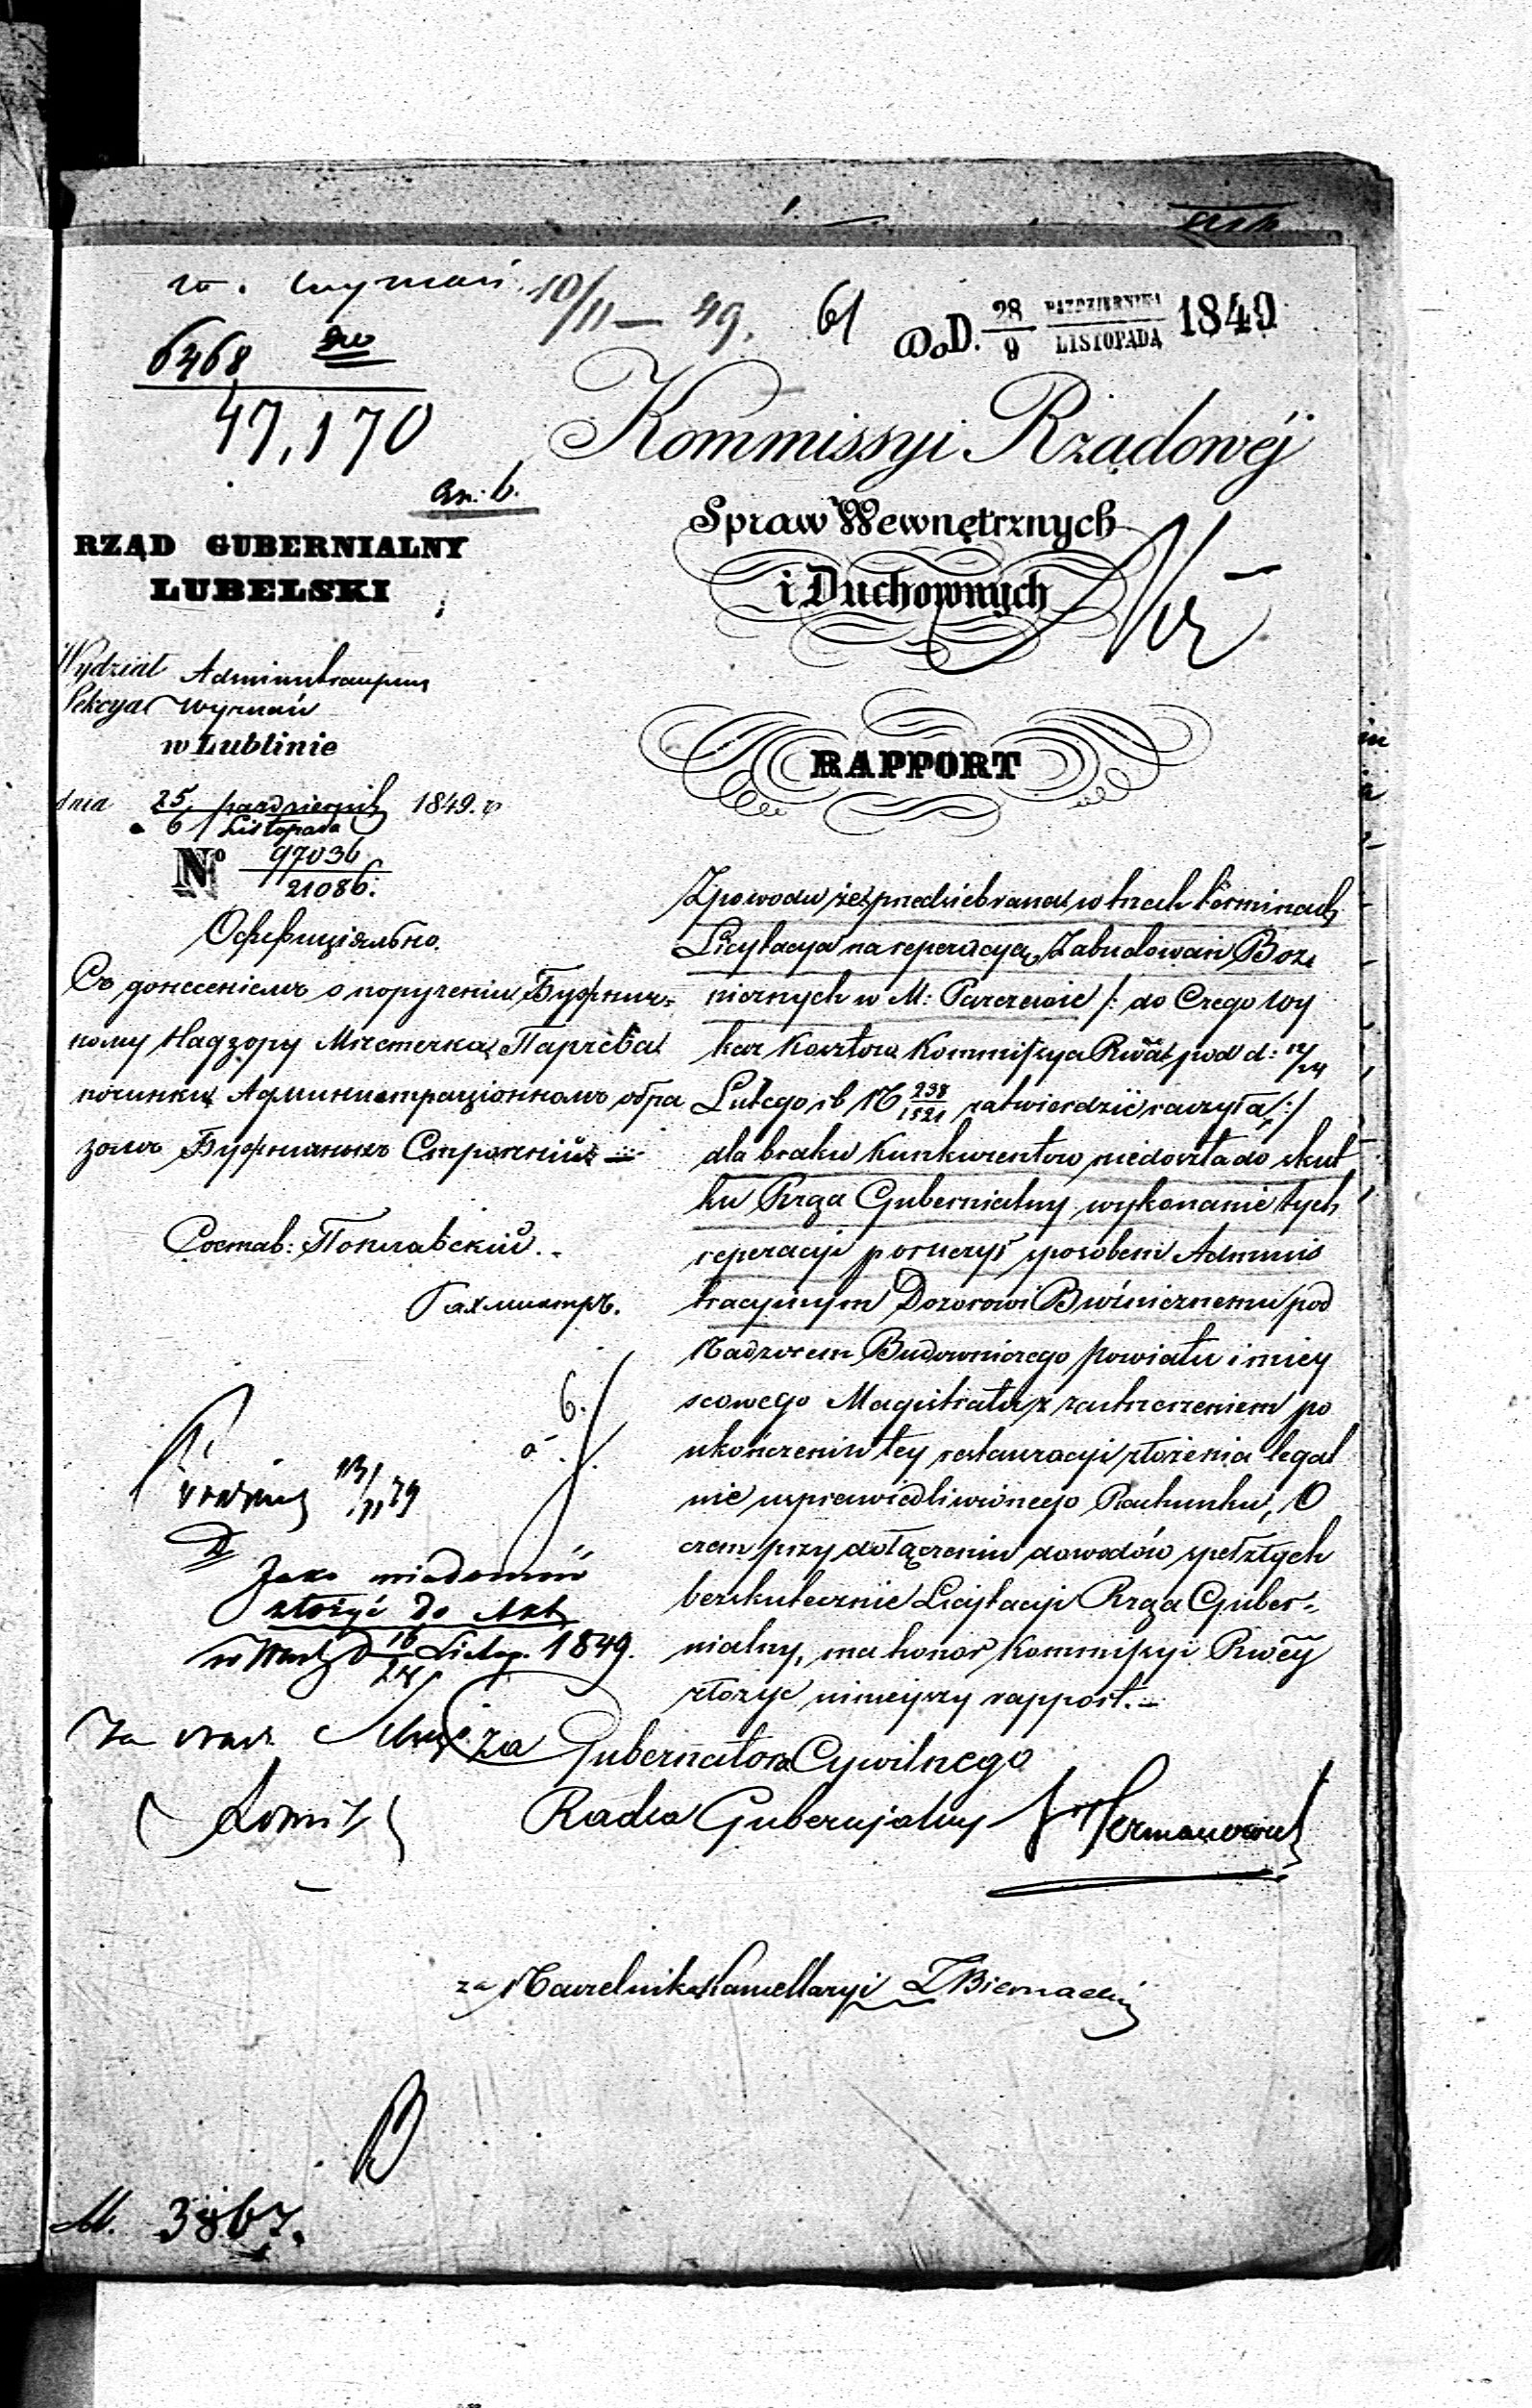 w. wyznań 10/11 – 49. 61
DoD. 28/9 PAŹDZIERNIKA/LISTOPADA 1849
6468
47,170
an: 6.
RZĄD GUBERNIALNY
LUBELSKI
Wydział Administracyjny
Sekcya Wyznań
w Lublinie
dnia 25/6 października/Listopada 1849. r
No 97036/21086.
Оффиціяльно.
Съ донесеніемъ о порученіи Бужнич-
ному Надзору Мѣстечка Парчева
починки Администраціоннымъ обра
зомъ Бужничныхъ Строеній
Состав: Поплавскій.
Kommissyi Rządowéj
Spraw Wewnętrznych
i Duchownych
RAPPORT
Z powodu że przedsiebrana w trzech terminach
Licytacya na reperacyą Zabudowań Boż
nicznych w M: Parczewie /: do Czego Wy
kaz Kosztow Kommissya Rwa pod d: 12/24
Lutego rb N 238/1521 zatwierdzić raczyła :/
dla braku Kunkurentow niedoszła do skut
ku Rząd Gubernialny wykonanie tych
reperacyi poruczył sposobem Adminis
tracyjnym Dozorowi Bóźnicznemu pod
Nadzorem Budowniczego Powiatu i miey
scowego Magistratu z zastrzeżeniem po
ukończeniu tey restauracyi złożenia legal
nie usprawiedliwionego Rachunku, O
czem przy dołączeniu dowodów spełzłych
bezskutecznie Licytacyi Rząd Guber-
nialny, ma honor Kommissyi Rwéy
złożyć ninieyszy rapport.
6.
Jako wiadomość
złożyć do Akt
w Warsz D 16/28 Listop. 1849.
za Gubernatora Cywilnego
Radca Gubernjalny Hermanowicz
za Naczelnika Kancellaryi Biernacki
M. 3867.